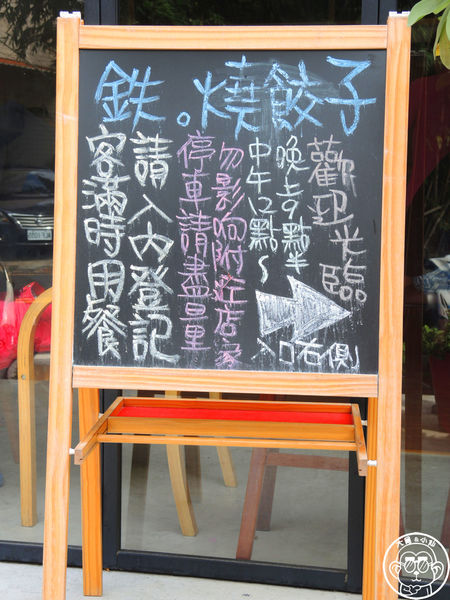 鉄。燒餃子
歡迎光臨
晚上9點半
中午12點~
入口右側
勿影响附近店家
停車請盡量
請入內登記
客滿時用餐